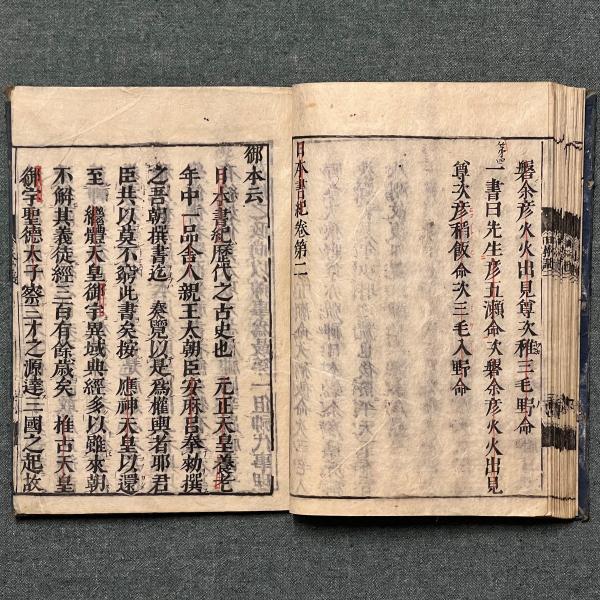 磐余彦火火出見尊次稚三毛野命
一書曰先生彦五瀬命次磐余彦火火出見
尊次彦稲飯命次三毛入野命
日本書紀巻第二
御本云
日本書紀歴代之古史也 元正天皇養老
年中一品舎人親王太朝臣安麻呂奉勅撰
之吾朝撰書迄 奏覧以是為権輿者耶君
臣共以莫不窮此書矣按 應神天皇以還
至 繼體天皇御宇異域典經多以雖来朝
不解其義徒經三百有餘歳矣 推古天皇
御宇聖徳太子察三才之源達三國之起故